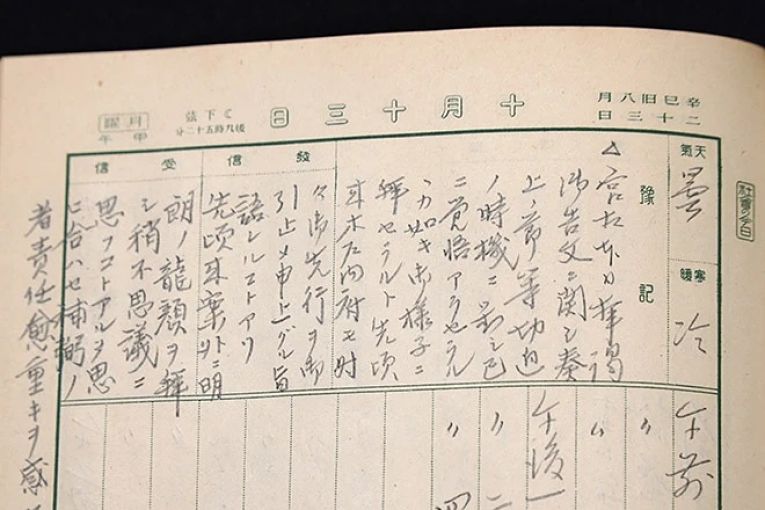 辛巳旧八月
二十三日
十月十三日
☾下弦
後九時五十二分
月曜
甲午
社會の今日
天氣
曇
寒暖
冷
豫記
△宮相本日拝謁
御告文ニ関シ奏
上ノ節等切迫
ノ時機ニ対シ已
ニ覚悟アラセラル
ヽカ如キ御様子ニ
拝セラルト先頃
来木戸内府モ時
發信
々御先行ヲ御
引止メ申上グル旨
語レルコトアリ
先頃来案外ニ明
受信
朗ノ龍顔ヲ拝
シ稍不思議ニ
思フコトアルヲ思
ヒ合ハセ補弼ノ
者責任愈重キヲ感
午前
〃
〃
午後一
〃 二
〃 四